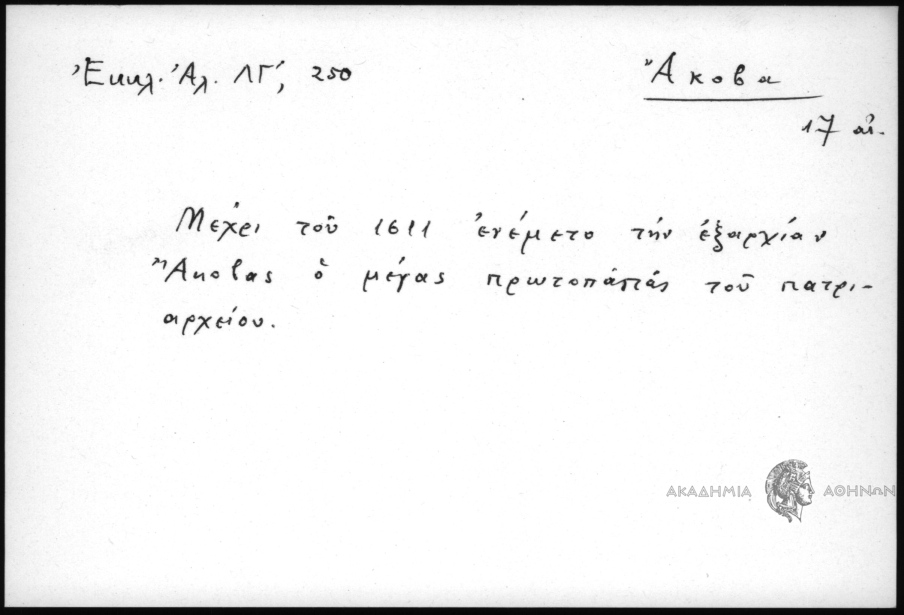 Ἐκκλ. Ἀλ. ΛΓ', 250
Ἄκοβα
17 αἰ.
Μέχρι τοῦ 1611 ἐνέμετο τήν ἐξαρχίαν
Ἄκοβας ὁ μέγας πρωτοπαπᾶς τοῦ πατρι-
αρχείου.
ΑΚΑΔΗΜΙΑ ΑΘΗΝΩΝ